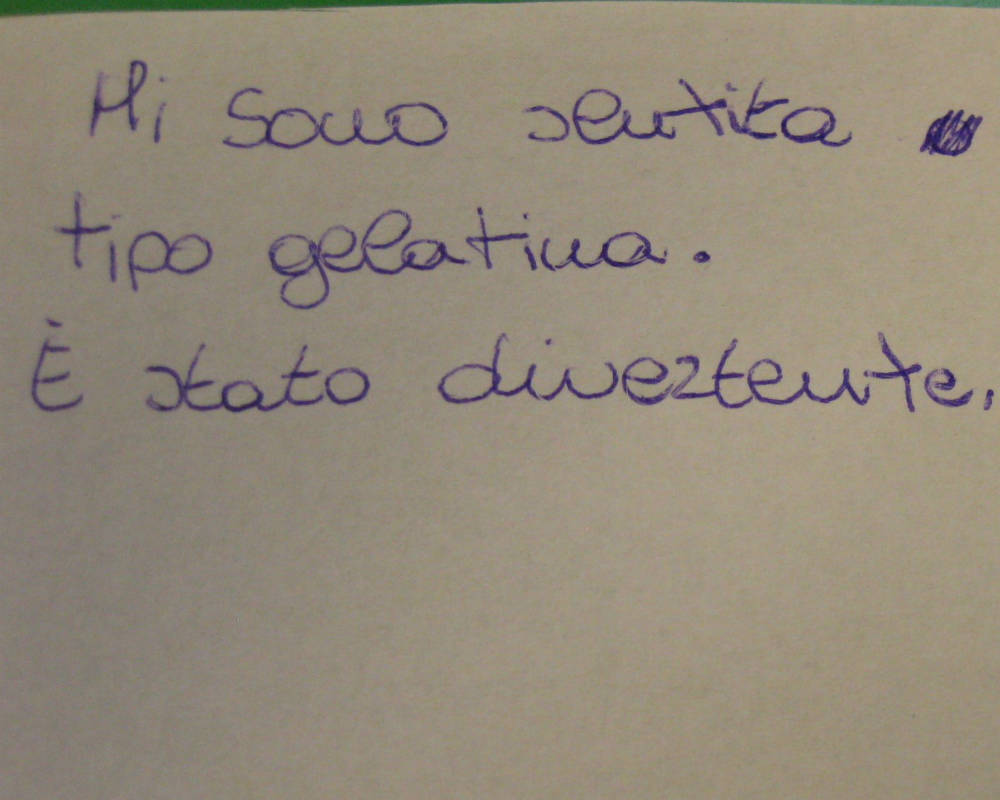 Mi sono sentita
tipo gelatina.
È stato divertente.